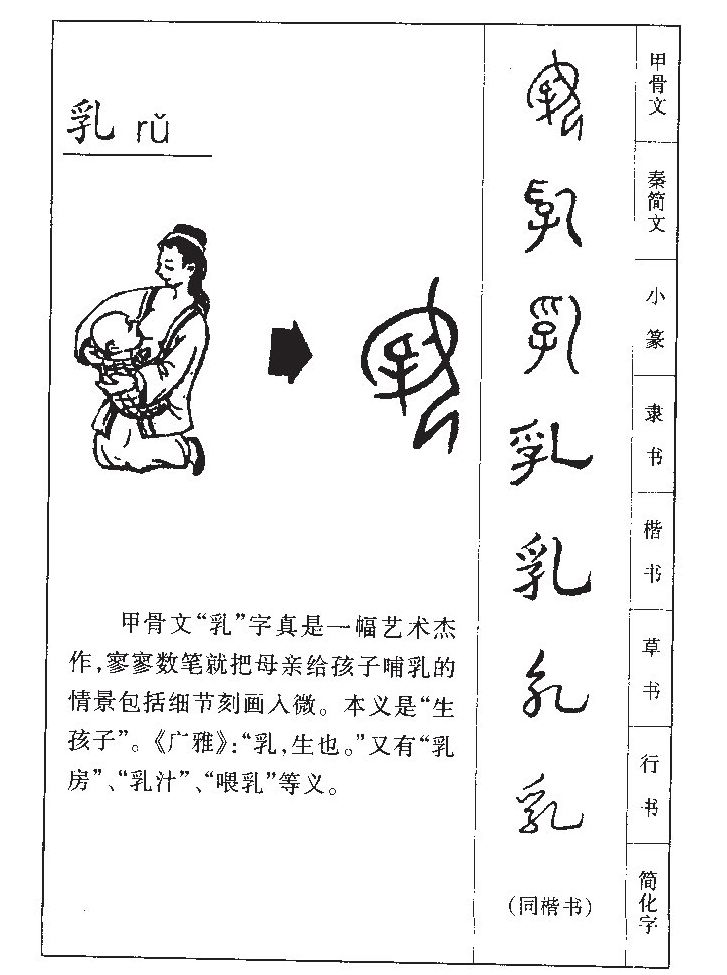 乳 rǔ
甲骨文“乳”字真是一幅艺术杰
作，寥寥数笔就把母亲给孩子哺乳的
情景包括细节刻画入微。本义是“生
孩子”。《广雅》：“乳，生也。”又有“乳
房”、“乳汁”、“喂乳”等义。
甲骨文
秦简文
小篆
乳
隶书
乳
楷书
乳
草书
乳
行书
(同楷书)
简化字